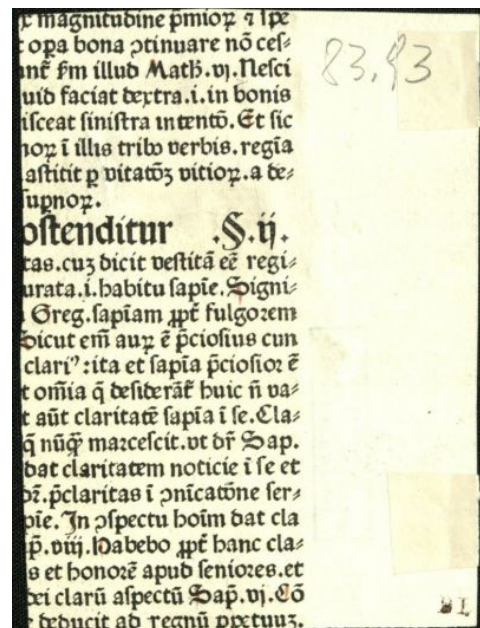 magnitudine p̄mioꝝ ⁊ spe
opa bona ꝯtinuare nō ces⸗
unt̄ s̄m illud Math̄.vj.Nesci
uid faciat dextra.i.in bonis
isceat sinistra intentō.Et sic
noꝝ ī illis tribꝰ verbis.regīa
astitit ꝑ vitatōꝫ vitioꝝ.a de⸗
supnoꝝ.
ostenditur .§.ij.
tas.cuꝫ dicit vestitā eē regi⸗
urata.i.habitu sapīe.Signi⸗
Greg.sapīam ꝓpt̄ fulgorem
Sicut em̄ auꝝ ē p̄ciosius cun
clariꝰ:ita et sapīa p̄ciosior ē
t om̄ia q̄ desiderāt̄ huic n̄ va⸗
t aūt claritatē sapīa ī se.Cla⸗
q̄ nūq̄ꝫ marcescit.vt dr̄ Sap.
dat claritatem noticie ī se et
or̄.p̄claritas ī ꝯnicatōne ser⸗
pīe.In ꝯspectu hoīm dat cla
ap̄.viij.Habebo ꝓpt̄ hanc cla⸗
s et honorē apud seniores.et
dei clarū aspectū Sap̄.vj.Cō
e deducit ad regnū ꝑpetuuꝫ.
83.93
BI